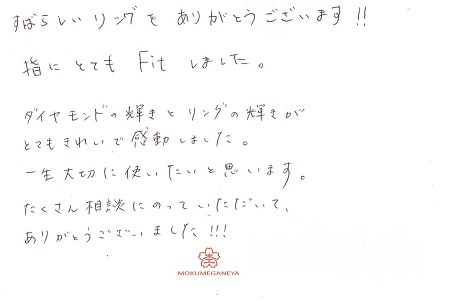 すばらしいリングを ありがとうございます!!
指に とても Fit しました。
ダイヤモンドの輝きと リングの輝きが
とてもきれいで感動しました。
一生大切に使いたいと思います。
たくさん相談にのっていただいて、
ありがとうございました!!!
MOKUMEGANEYA